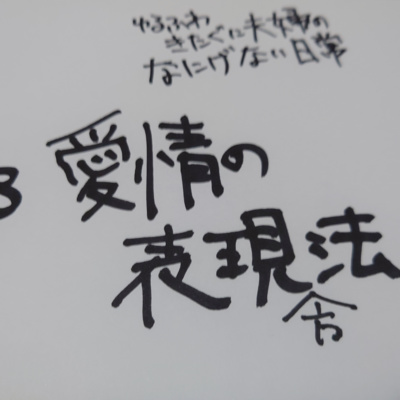 ゆるふわ
きたぐに夫婦の
なにげない日常
3 愛情の
表現法
方